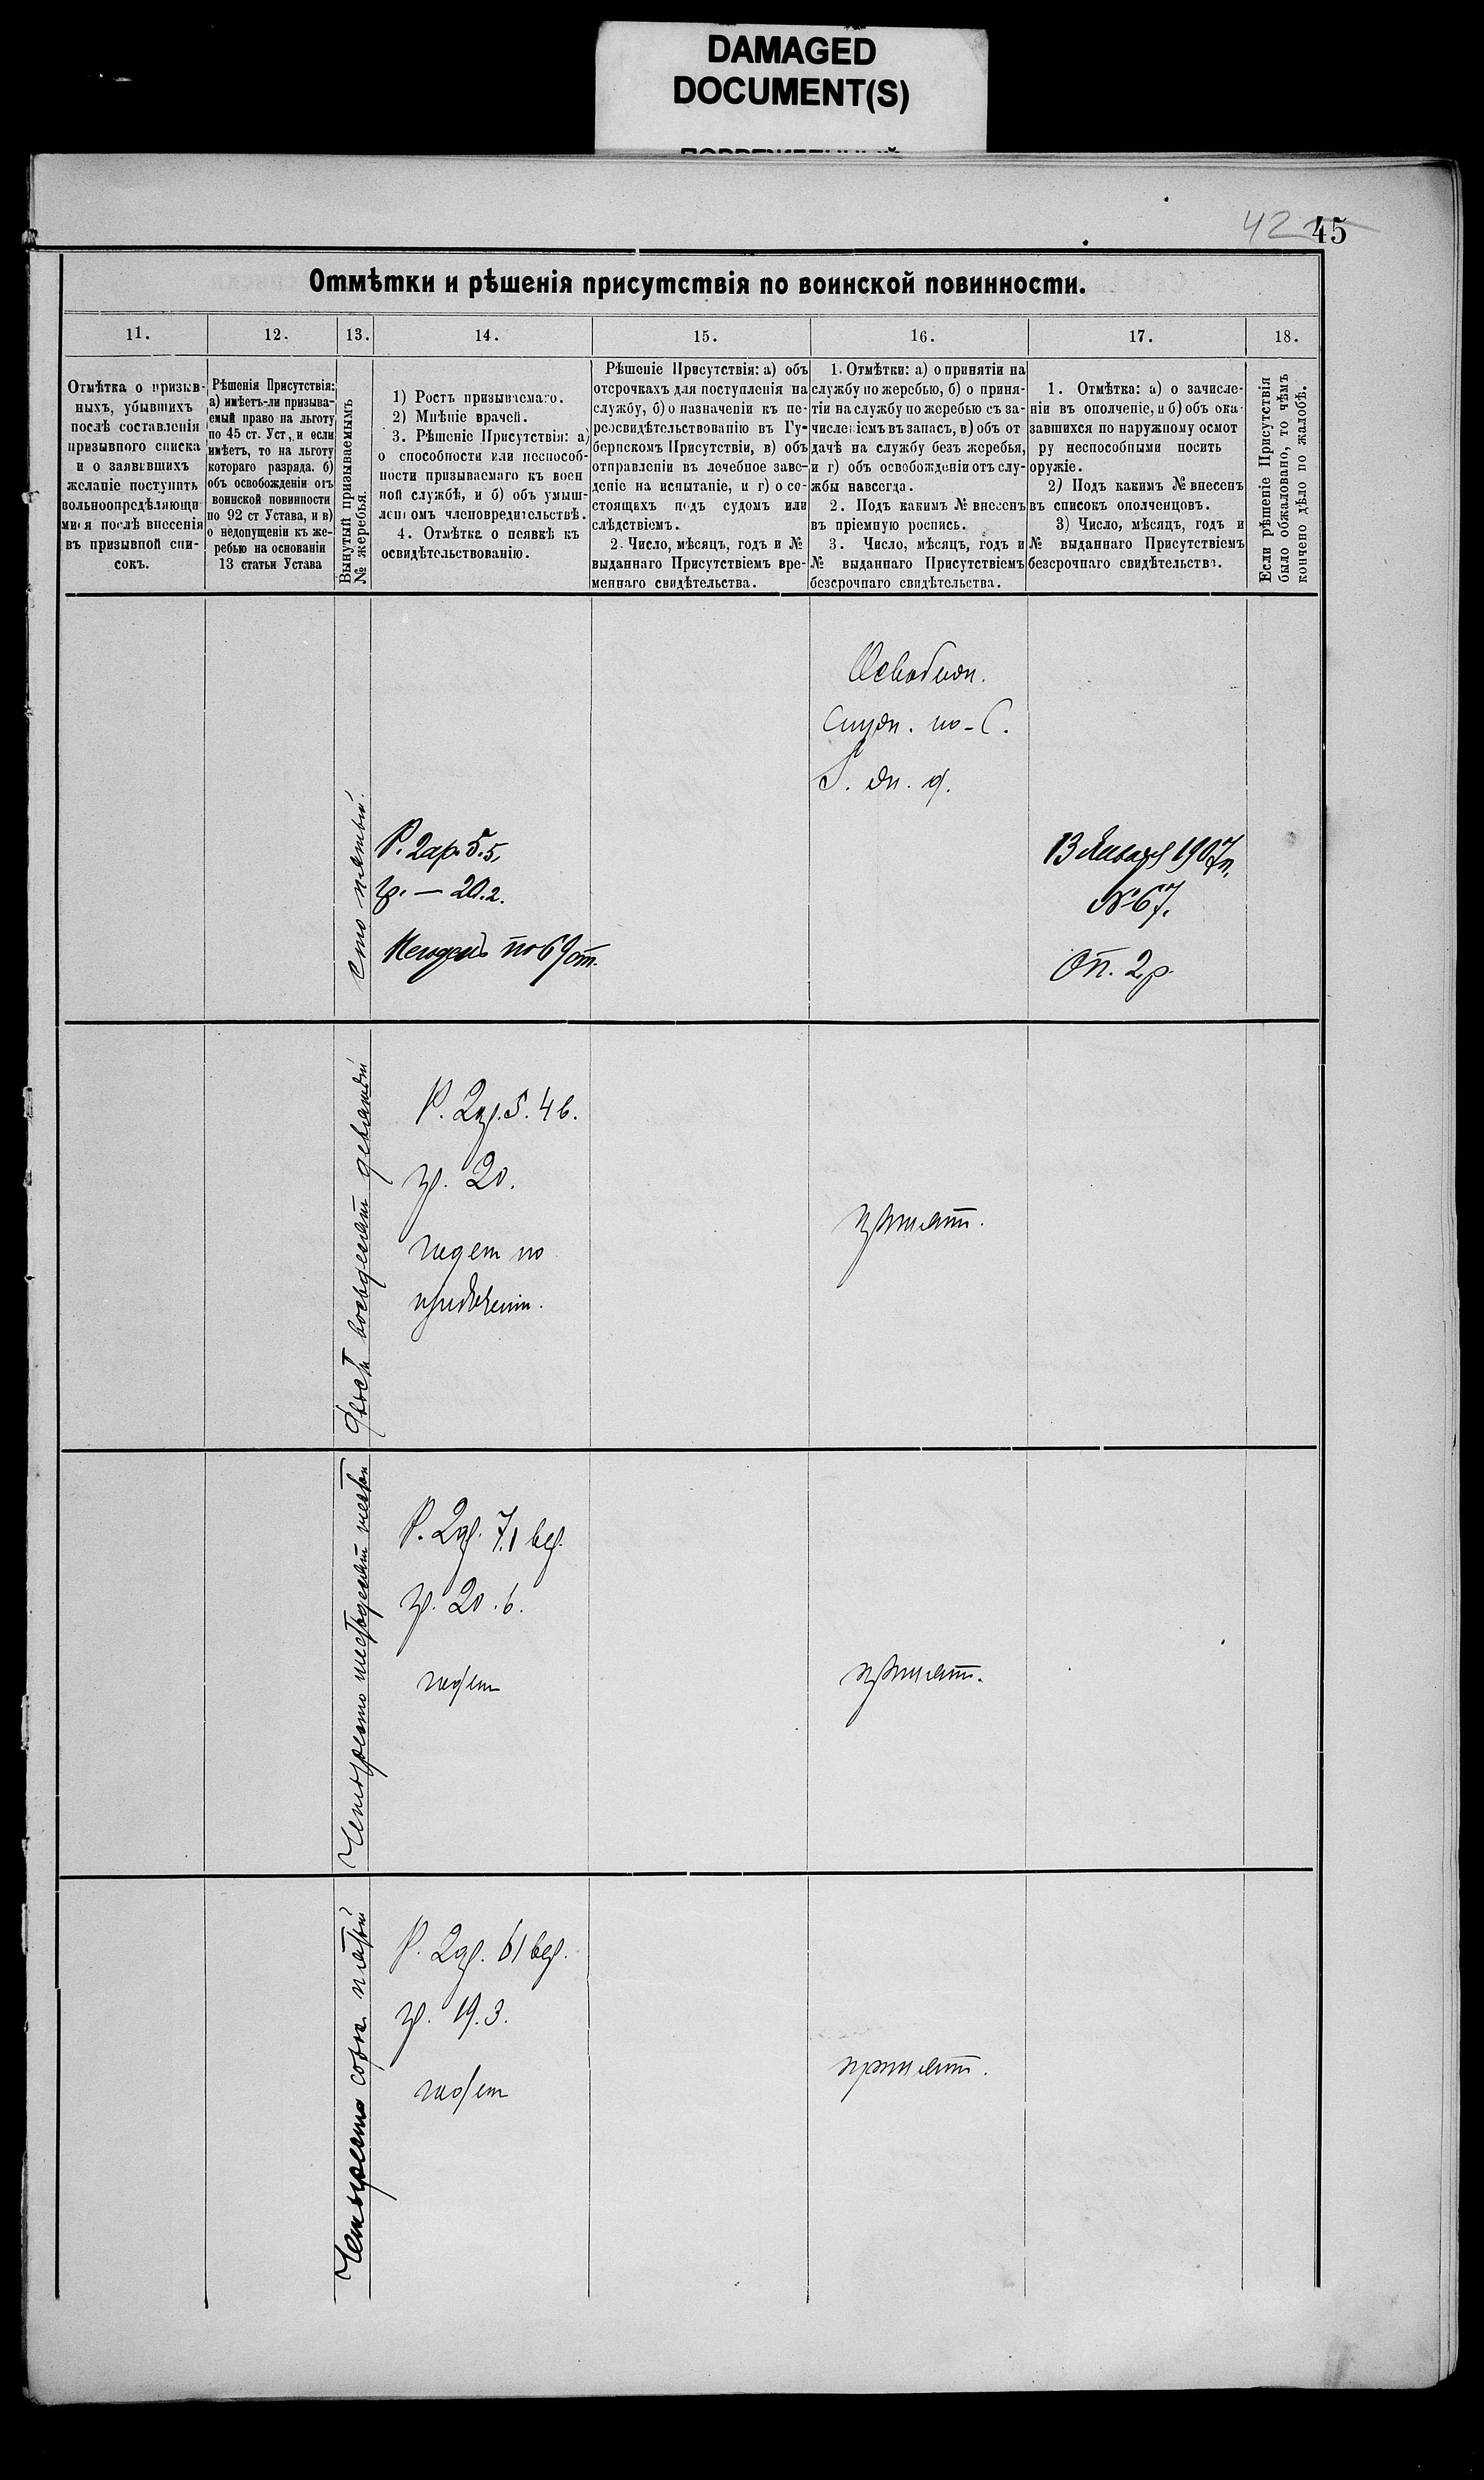 DAMAGED
DOCUMENT(S)
42
45
Отмѣтки и рѣшенія присутствія по воинской повинности.
11.
12.
13.
14.
15.
16.
17.
18.
Отмѣтка о призыв-
ныхъ, убывшихъ
послѣ составленія
призывного списка
и о заявившихъ
желаніе поступить
вольноопредѣляющи
мися послѣ внесенія
въ призывной спи-
сокъ.
Рѣшенія Присутствія:
а) имѣетъ-ли призыва-
емый право на льготу
по 45 ст. Уст., и если
имѣетъ, то на льготу
котораго разряда. б)
объ освобожденіи отъ
воинской повинности
по 92 ст Устава, и в)
о недопущеніи къ же-
ребью на основаніи
13 статьи Устава
Вынутый призываемымъ
№ жеребья.
1) Ростъ призываемаго.
2) Мнѣніе врачей.
3. Рѣшеніе Присутствія: а)
о способности или неспособ-
ности призываемаго къ воен
ной службѣ, и б) объ умыш-
ленномъ членовредительствѣ.
4. Отмѣтка о неявкѣ къ
освидѣтельствованію.
Рѣшеніе Присутствія: а) объ
отсрочкахъ для поступленія на
службу, б) о назначеніи къ пе-
реосвидѣтельствованію въ Гу-
бернскомъ Присутствіи, в) объ
отправленіи въ лечебное заве-
деніе на испытаніе, и г) о со-
стоящихъ подъ судомъ или
слѣдствіемъ.
2. Число, мѣсяцъ, годъ и №
выданнаго Присутствіемъ вре-
меннаго свидѣтельства.
1. Отмѣтки: а) о принятіи на
службу по жеребью, б) о приня-
тіи на службу по жеребью съ за-
численіемъ въ запасъ, в) объ от
дачѣ на службу безъ жеребья,
и г) объ освобожденіи отъ слу-
жбы навсегда.
2. Подъ какимъ № внесенъ
въ пріемную роспись.
3. Число, мѣсяцъ, годъ и
№ выданнаго Присутствіемъ
безсрочнаго свидѣтельства.
1. Отмѣтка: а) о зачисле-
ніи въ ополченіе, и б) объ ока
завшихся по наружному осмот
ру неспособными носить
оружіе.
2) Подъ какимъ № внесенъ
въ списокъ ополченцовъ.
3) Число, мѣсяцъ, годъ и
№ выданнаго Присутствіемъ
безсрочнаго свидѣтельства.
Если рѣшеніе Присутствія
было обжаловано, то чѣмъ
кончено дѣло по жалобѣ.
сто пятый.
Р. 2ар. 5.5.
гр. — 20.2.
Негоденъ по 69 ст.
13 Января 1907 г.
№ 67.
Оп. 2 р.
двѣсти восемдесят девятый
Р. 2ар. 5. 4 в.
гр. 20.
годен по
принят.
Четыреста шестьдесят
Р. 2ар. 7.1 вер.
гр. 20. 6.
годен
принят.
Четыреста сорок пятый
Р. 2ар. 61 вер.
гр. 19. 3.
годен
принят.